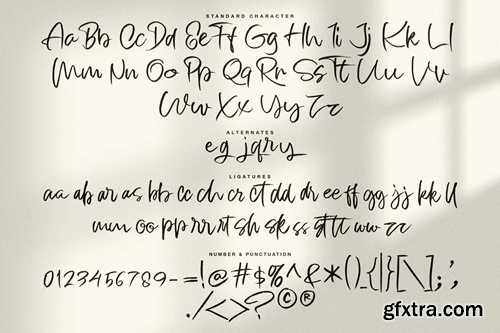 STANDARD CHARACTER
Aa Bb Cc Dd Ee Ff Gg Hh Ii Jj Kk Ll
Mm Nn Oo Pp Qq Rr Ss Tt Uu Vv
Ww Xx Yy Zz
ALTERNATES
e g j q r y
LIGATURES
aa ab ar as bb cc ch cr ct dd dr ee ff gg jj kk ll
mm oo pp rr rt sh sk ss tt ww zz
NUMBER & PUNCTUATION
0123456789-=!@#$%^&*()_{|}[\];',
./<>?©®
gfxtra.com